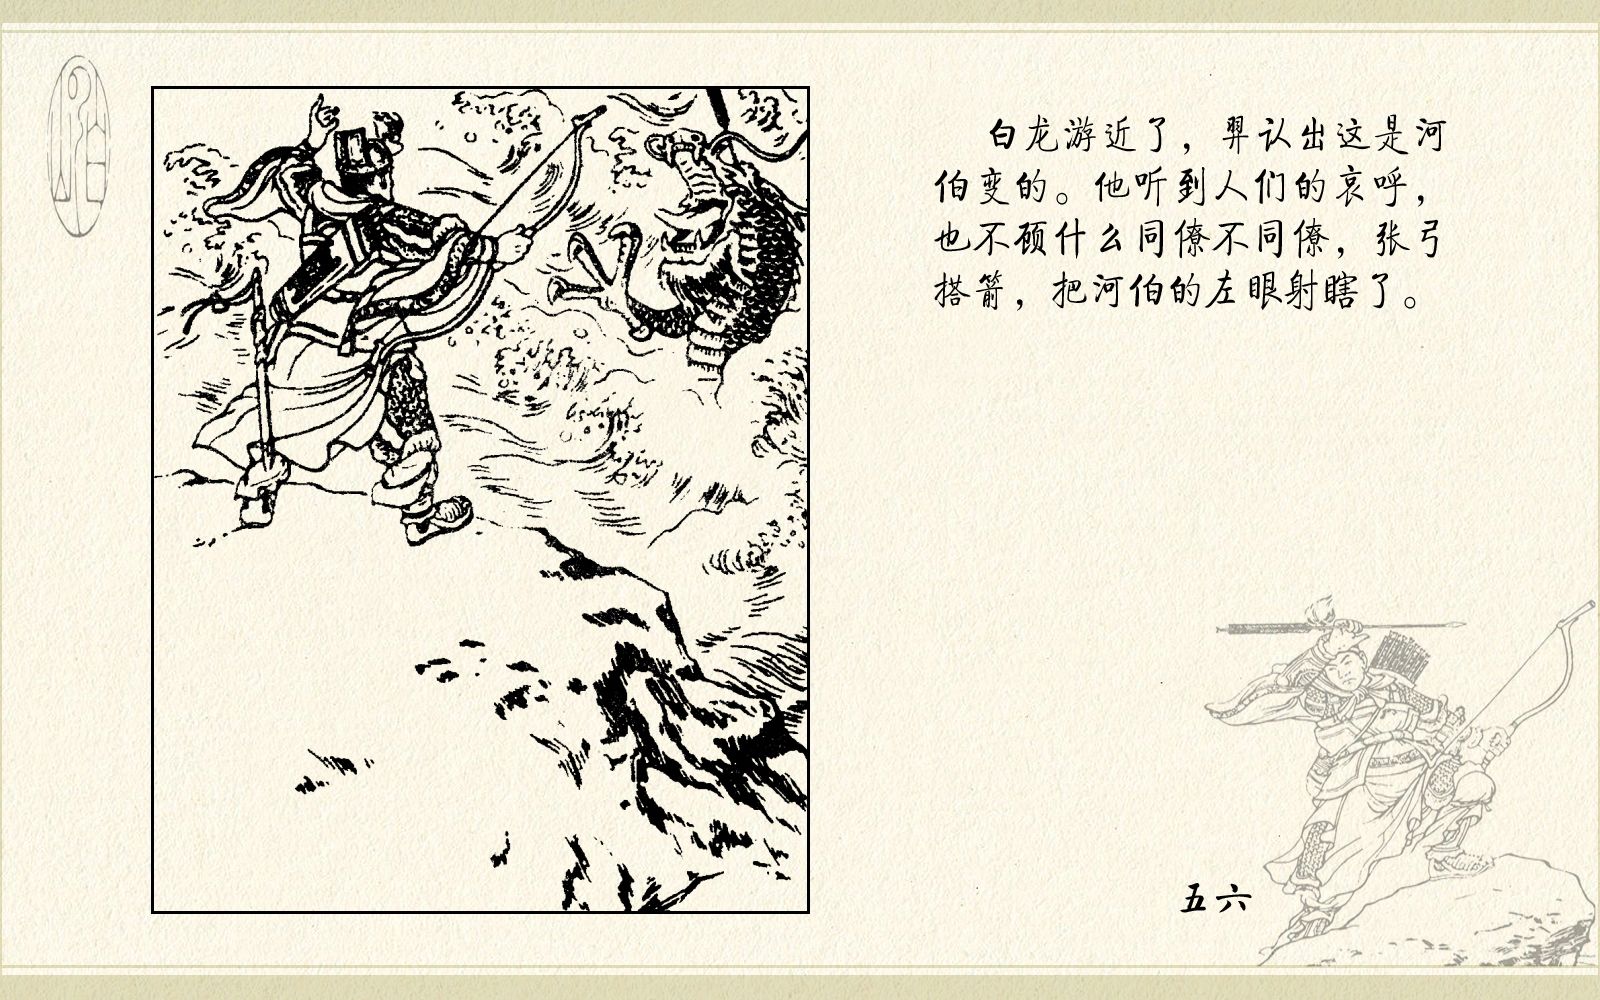 白龙游近了，羿认出这是河
伯变的。他听到人们的哀呼，
也不顾什么同僚不同僚，张弓
搭箭，把河伯的左眼射瞎了。
五六